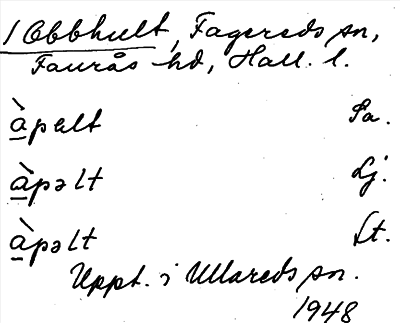 1 Obbhult, Fagereds sn,
Faurås hd, Hall. l.
àpult Sa.
àpəlt Lj.
àpəlt St.
Uppt. i Ullareds sn.
1948